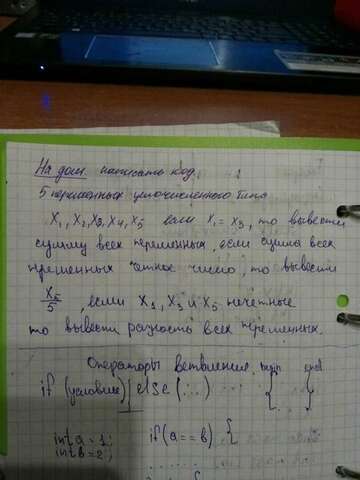 На дом. написать код.
5 переменных целочисленного типа
X1, X2, X3, X4, X5 если X1 = X3, то вывести
сумму всех переменных, если сумма всех
переменных чётное число, то вывести
X5/5, если X1, X3 и X5 нечетные
то вывести разность всех переменных.
Операторы ветвления
if (условие) else (...) ... { ... }
int a = 1; if (a == b) {
int b = 2;